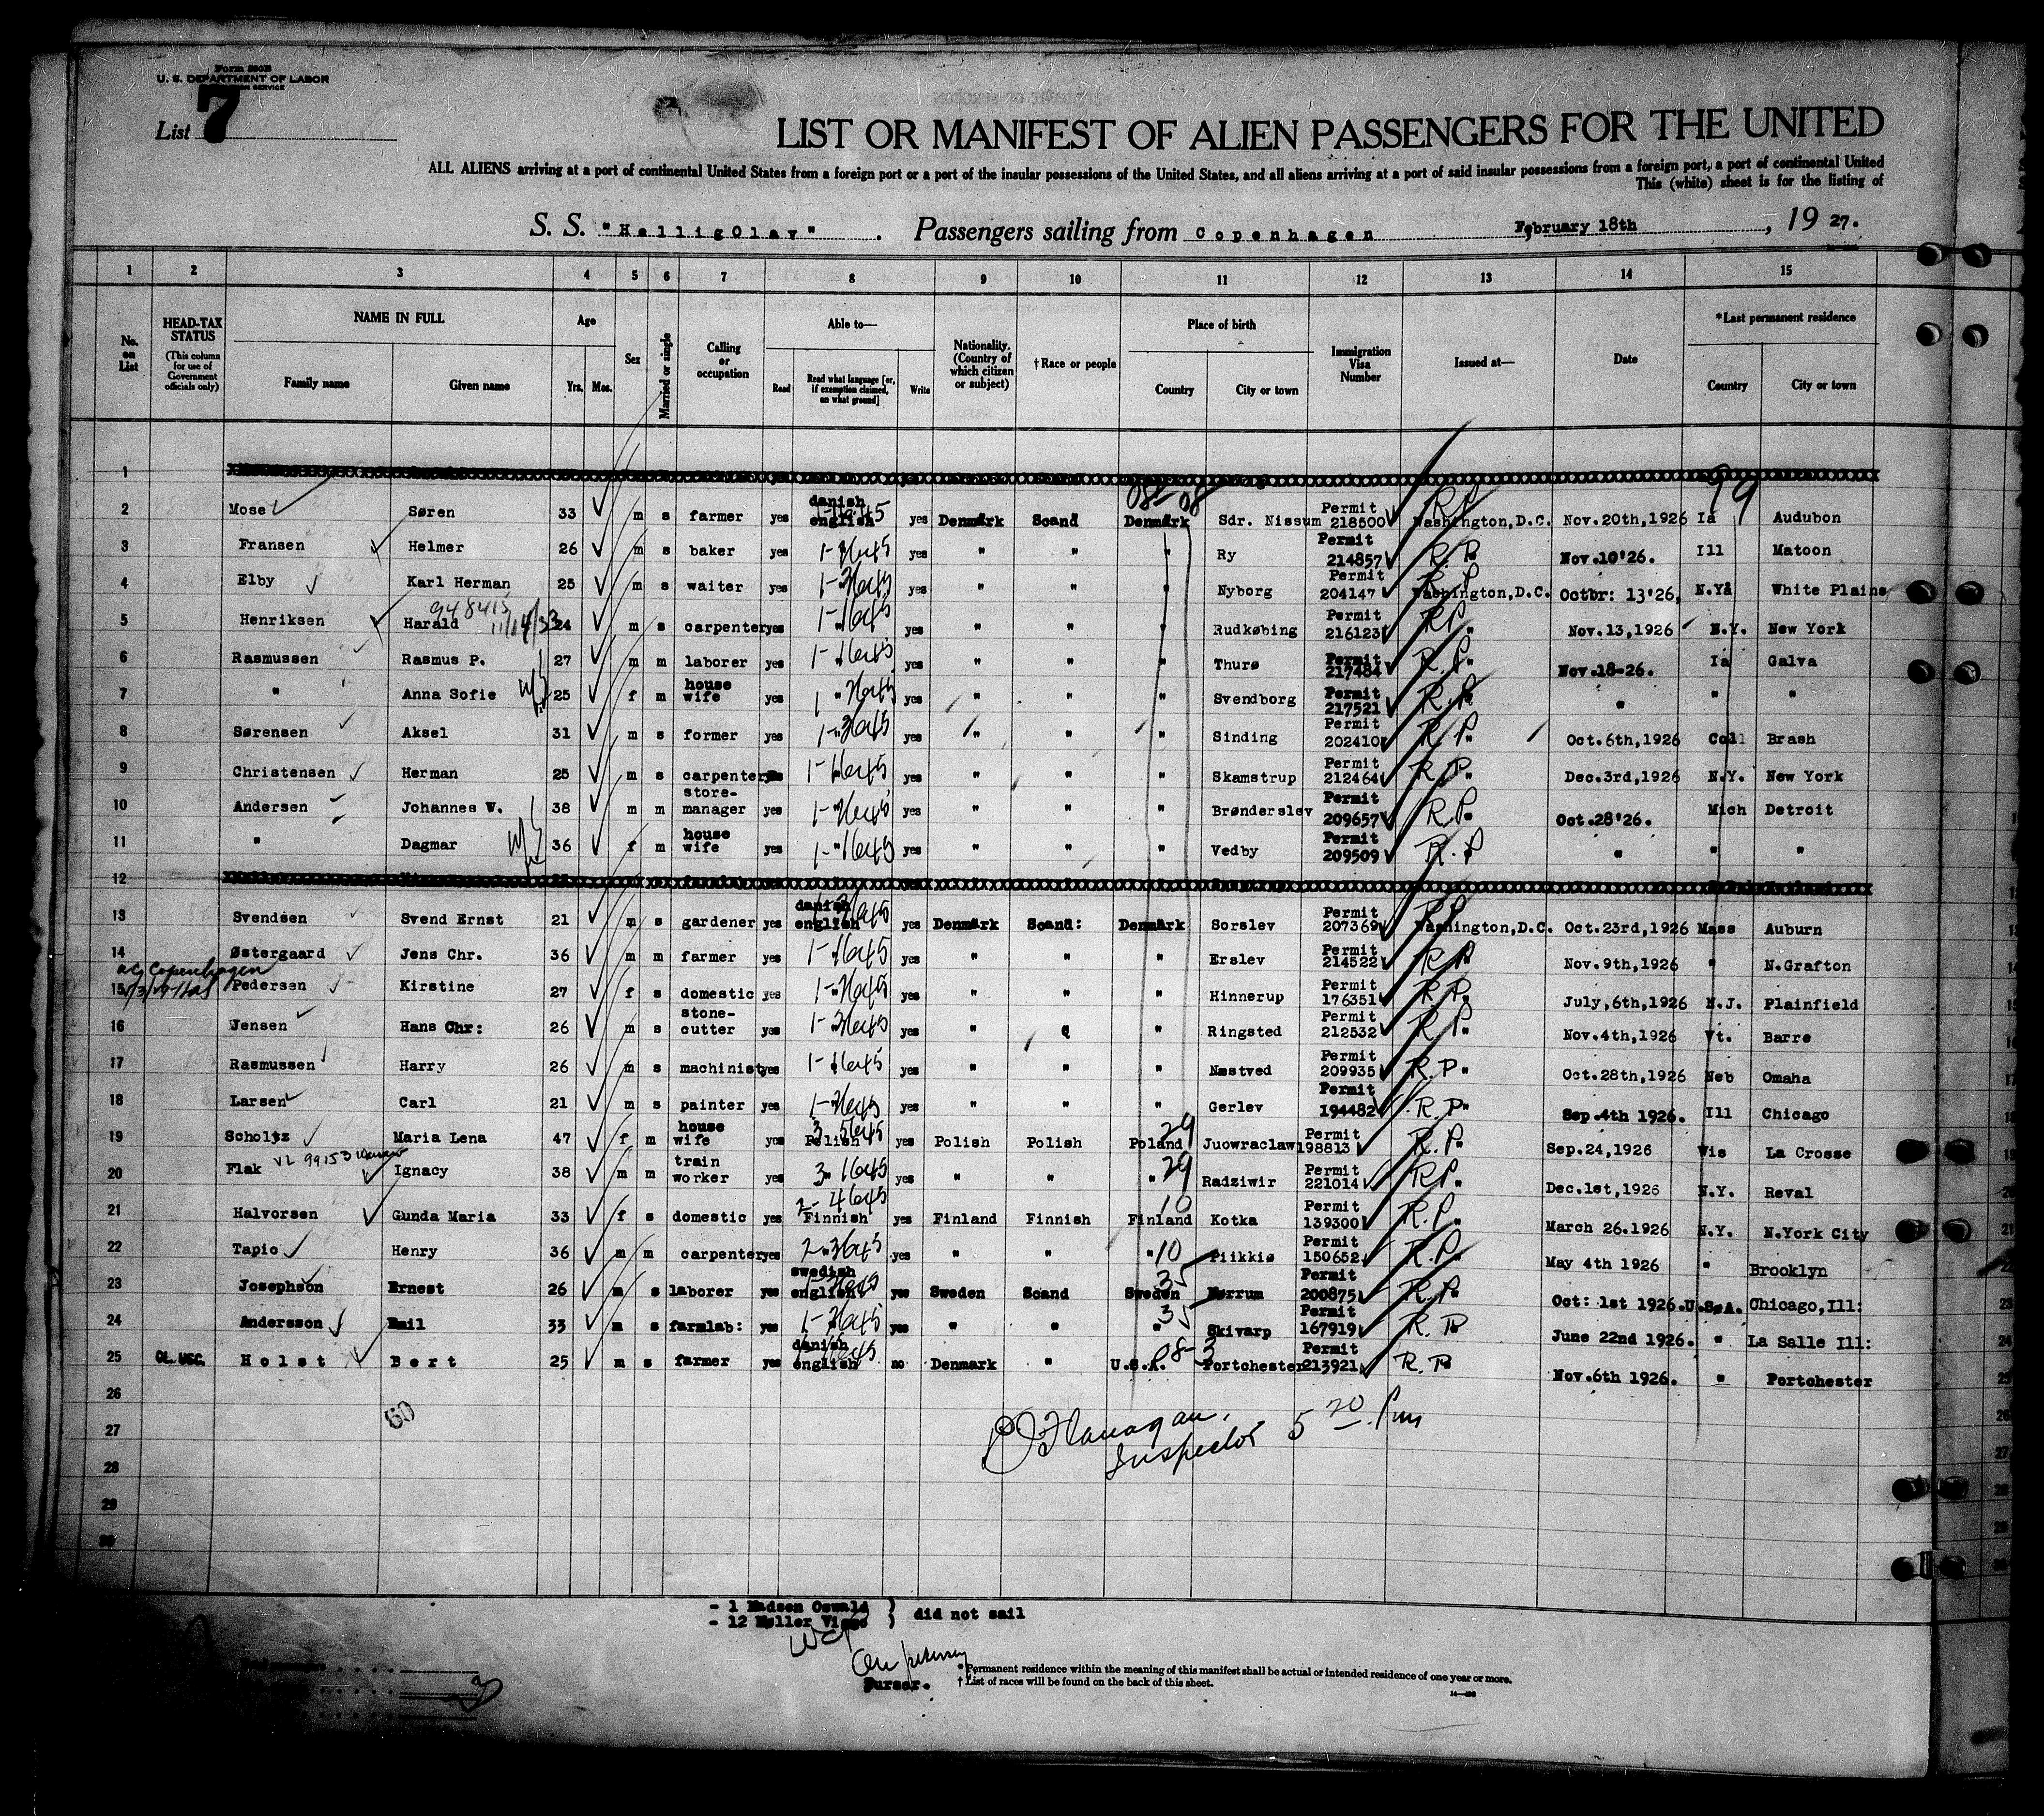 Form 500B
U. S. DEPARTMENT OF LABOR
List 7
LIST OR MANIFEST OF ALIEN PASSENGERS FOR THE UNITED
ALL ALIENS arriving at a port of continental United States from a foreign port or a port of the insular possessions of the United States, and all aliens arriving at a port of said insular possessions from a foreign port, a port of continental United
This (white) sheet is for the listing of
S. S. "HelligOlav". Passengers sailing from Copenhagen February 18th, 19 27.
1 2 3 4 5 6 7 8 9 10 11 12 13 14 15
No. on List HEAD-TAX STATUS (This column for use of Government officials only) NAME IN FULL Family name Given name Age Yrs. Mos. Sex Married or single Calling or occupation Able to— Read Read what language [or, if exemption claimed, on what ground] Write Nationality. (Country of which citizen or subject) †Race or people Place of birth Country City or town Immigration Visa Number Issued at— Date *Last permanent residence Country City or town
1
2 Mose Søren 33 m s farmer yes danish english yes Denmark Scand Denmark Sdr. Nissum Permit 218500 Washington,D.C. Nov.20th,1926 Ia Audubon
3 Fransen Helmer 26 m s baker yes " yes " " " Ry Permit 214857 R.P. " Nov.10'26. Ill Matoon
4 Elby Karl Herman 25 m s waiter yes " yes " " " Nyborg Permit 204147 R.P. Washington,D.C. Octbr: 13'26, N.Y. White Plains
948415 11/14/33
5 Henriksen Harald 24 m s carpenter yes " yes " " " Rudkøbing Permit 216123 R.P. " Nov.13,1926 N.Y. New York
6 Rasmussen Rasmus P. 27 m m laborer yes " yes " " " Thurø Permit 217484 R.P. " Nov.18-26. Ia Galva
7 " Anna Sofie 25 f m house wife yes " yes " " " Svendborg Permit 217521 R.P. " " " "
8 Sørensen Aksel 31 m s former yes " yes " " " Sinding Permit 202410 R.P. " Oct.6th,1926 Coll Brash
9 Christensen Herman 25 m s carpenter yes " yes " " " Skamstrup Permit 212464 R.P. " Dec.3rd,1926 N.Y. New York
10 Andersen Johannes W. 38 m m store-manager yes " yes " " " Brønderslev Permit 209657 R.P. " Oct.28'26. Mich Detroit
11 " Dagmar 36 f m house wife yes " yes " " " Vedby Permit 209509 R.P. " " " "
12
13 Svendsen Svend Ernst 21 m s gardener yes danish english yes Denmark Scand: Denmark Sorslev Permit 207369 R.P. Washington,D.C. Oct.23rd,1926 Mass Auburn
14 Østergaard Jens Chr. 36 m m farmer yes " yes " " " Erslev Permit 214522 R.P. " Nov.9th,1926 " N.Grafton
Copenhagen
15 Pedersen Kirstine 27 f s domestic yes " yes " " " Hinnerup Permit 176351 R.P. " July,6th,1926 N.J. Plainfield
16 Jensen Hans Chr: 26 m s stone-cutter yes " yes " " " Ringsted Permit 212532 R.P. " Nov.4th,1926 Vt. Barre
17 Rasmussen Harry 26 m s machinist yes " yes " " " Næstved Permit 209935 R.P. " Oct.28th,1926 Neb Omaha
18 Larsen Carl 21 m s painter yes " yes " " " Gerlev Permit 194482 R.P. " Sep.4th 1926. Ill Chicago
19 Scholtz Maria Lena 47 f m house wife yes Polish yes Polish Polish Poland 29 Juowraclaw Permit 198813 R.P. " Sep.24,1926 Wis La Crosse
VL 99153 Warsaw
20 Flak Ignacy 38 m m train worker yes " yes " " " 29 Radziwir Permit 221014 R.P. " Dec.1st,1926 N.Y. Reval
21 Halvorsen Gunda Maria 33 f s domestic yes Finnish yes Finland Finnish Finland 10 Kotka Permit 139300 R.P. " March 26.1926 N.Y. N.York City
22 Tapio Henry 36 m m carpenter yes " yes " " " 10 Piikkiø Permit 150652 R.P. " May 4th 1926 " Brooklyn
23 Josephson Ernest 26 m s laborer yes swedish english yes Sweden Scand Sweden 35 Mørrum Permit 200875 R.P. " Oct: 1st 1926. U.S.A. Chicago,Ill:
24 Andersson Emil 33 m s farmlab: yes " yes " " " 35 Skivarp Permit 167919 R.P. " June 22nd 1926. " La Salle Ill:
25 Holst Bert 25 m s farmer yes danish english no Denmark " U.S.A. 08-3 Portchester Permit 213921 R.P. " Nov.6th 1926. " Portchester
26
27
28
29
30
60
Flanagan,
Inspector 5 20 Pm
- 1 Madsen Oswald
- 12 Møller Viggo } did not sail
Purser.
* Permanent residence within the meaning of this manifest shall be actual or intended residence of one year or more.
† List of races will be found on the back of this sheet.